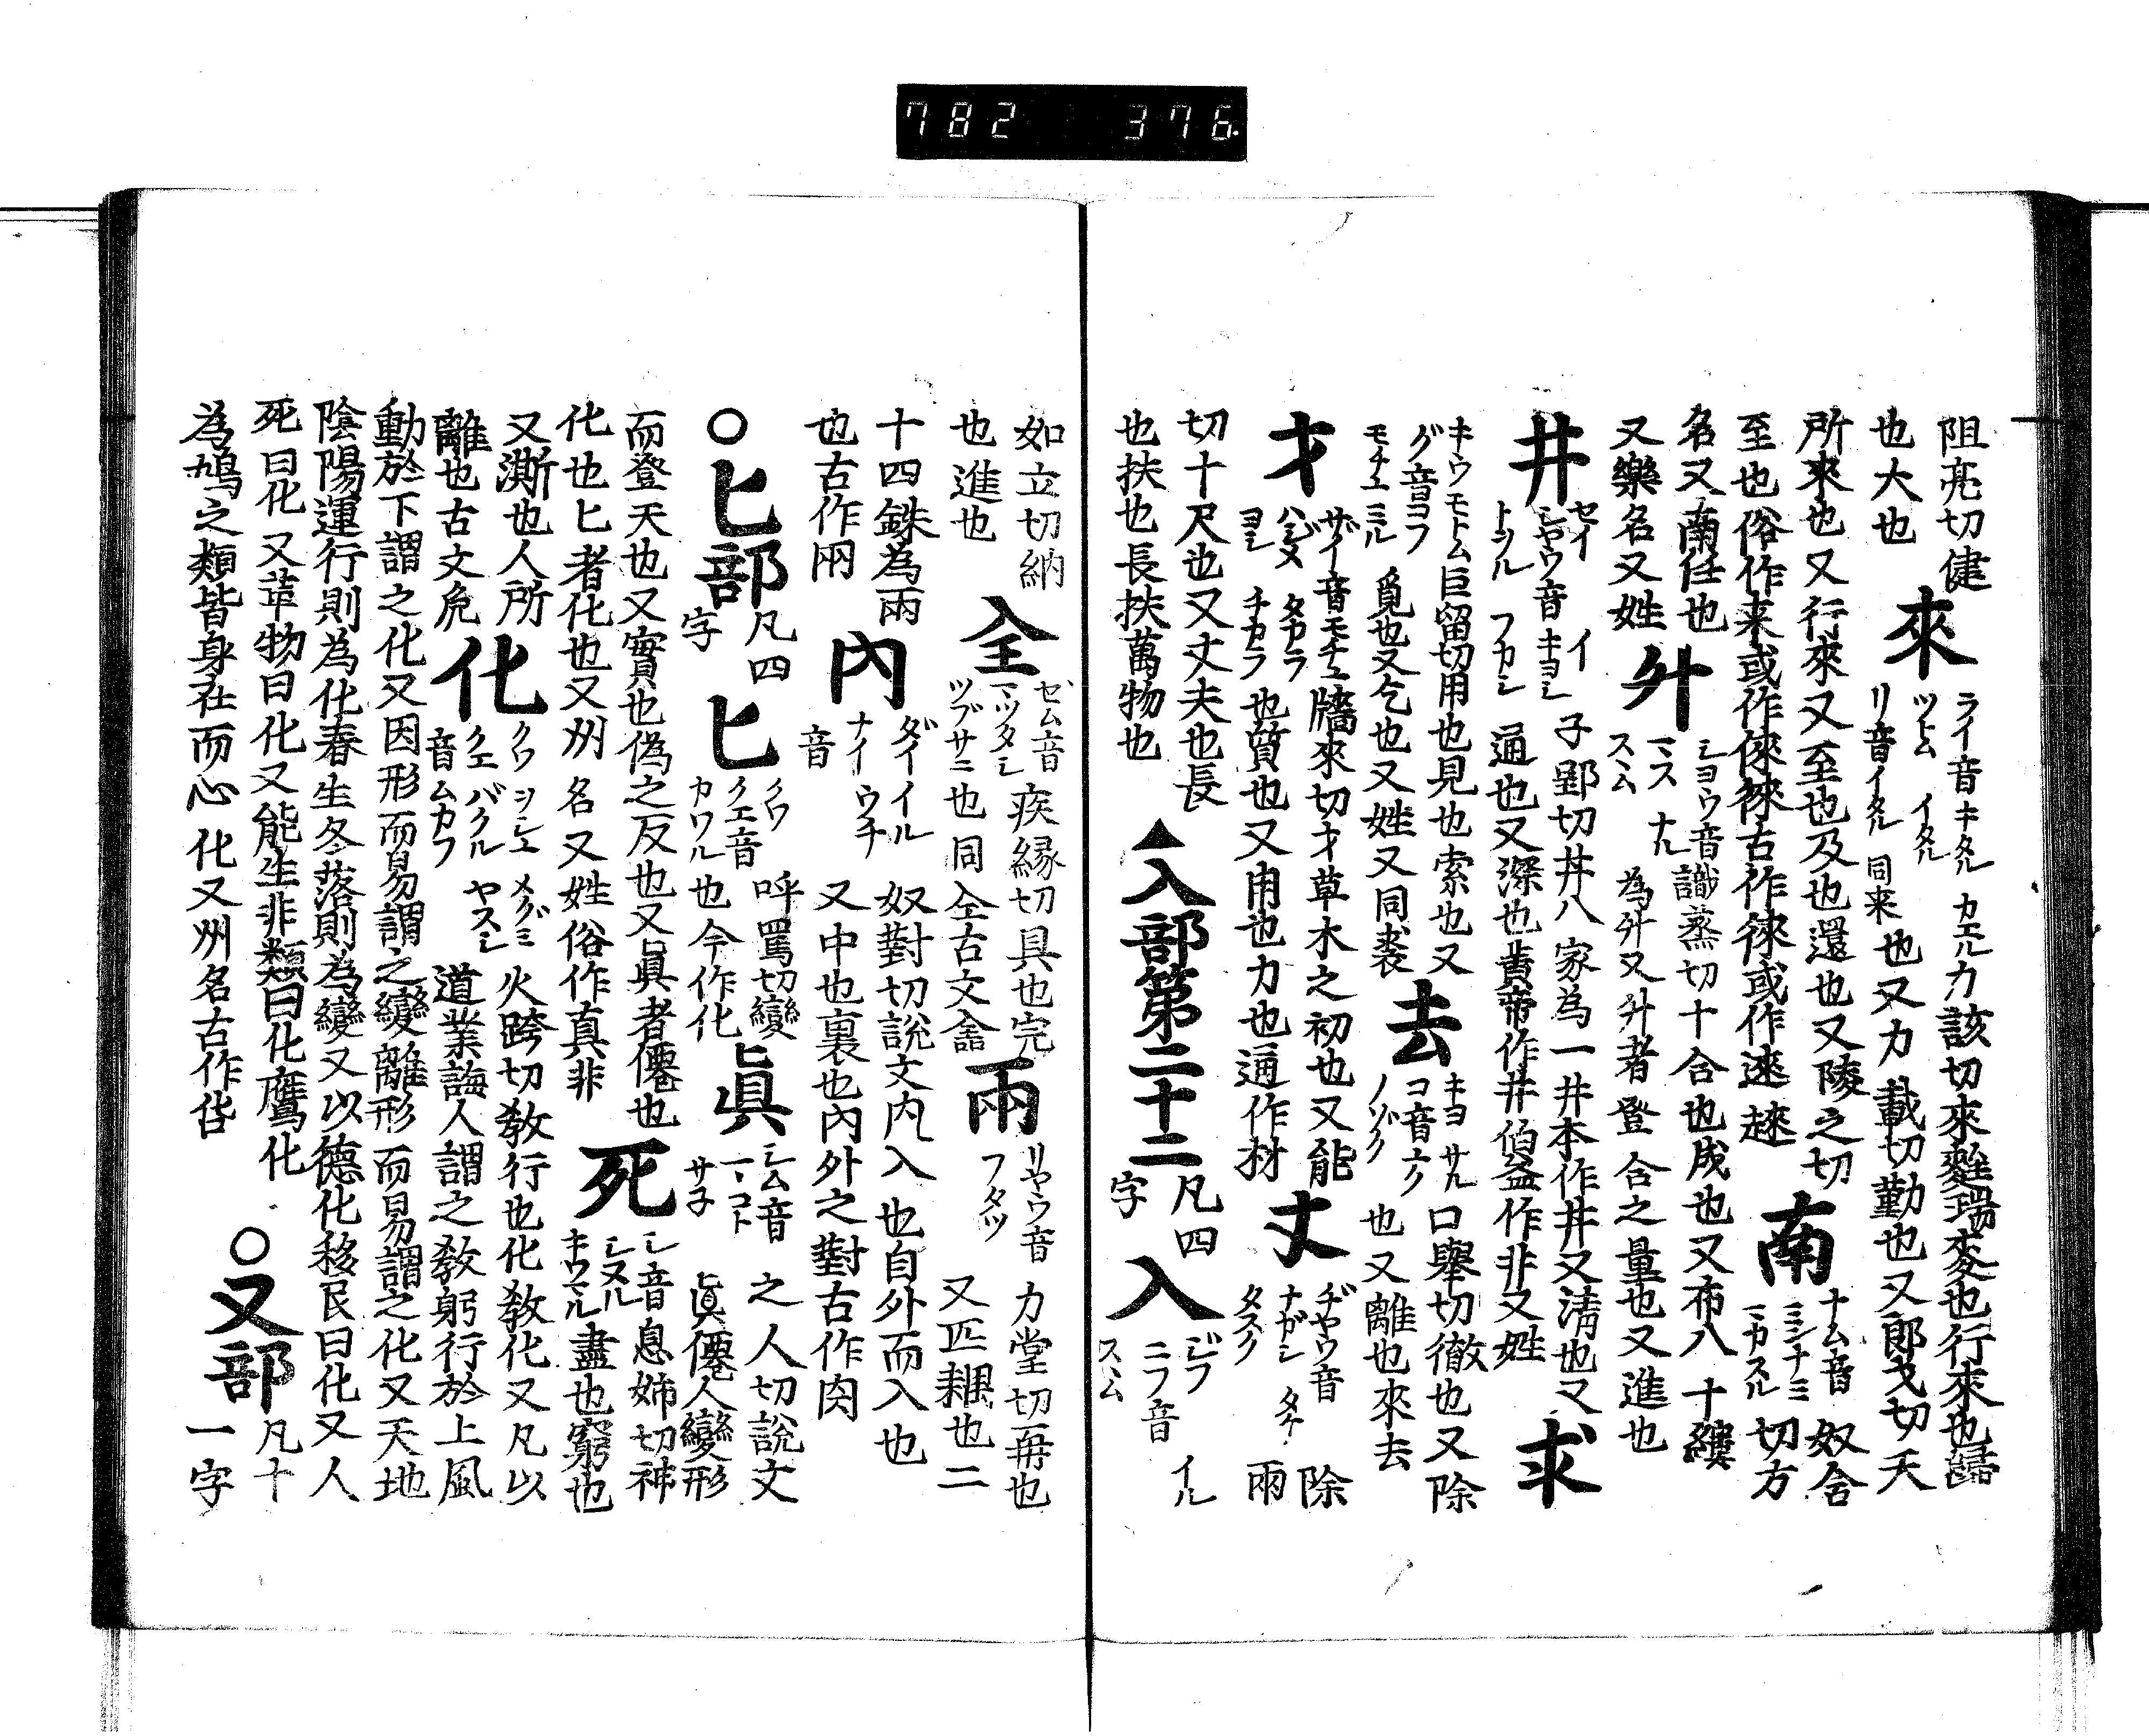 782 376.
阻亮切健
也大也
來
ライ音キタル カエル
ツトム イタル
リ音イタル 同来
力該切來麰瑞麥也行來也歸
也又力載切勤也又郎戈切天
所來也又行來又至也及也還也又陵之切
至也俗作来或作倈徠古作徠或作逨趚
南
ナム音
ミンナミ
奴含
切方
名又南任也
又樂名又姓
升
ショウ音
ス丶ム ナル
識蒸切十合也成也又布八十縷
為升又升者登合之量也又進也
井
セイ
シヤウ音
イ
キヨシ
フカシ
子郢切井八家為一井本作井又清也又
通也又深也黃帝作井伯益作井又姓
求
キウモトム
グ音コフ
モチユミル
巨留切用也見也索也又
覓也又乞也又姓又同裘
去
キヨ サル
コ音ユク
ノゾク
口舉切徹也又除
也又離也來去
才
ザイ音モチユ
ハジメ タカラ
ヨシ チカラ
牆來切才草木之初也又能
也質也又用也力也通作材
丈
ヂヤウ音
ナガシ タケ
タスク
除
兩
切十尺也又丈夫也長
也扶也長扶萬物也
▲入部第二十二
凡四
字
入
ジフ
ニフ音 イル
スヽム
如立切納
也進也
全
ゼム音
マツタシ
ツブサニ
疾縁切具也完
也同仝古文𠓴
兩
リヤウ音
フタツ
力堂切再也
又匹耦也二
十四銖為兩
也古作㒳
內
ダイイル
ナイ ウチ
音
奴對切說文内入也自外而入也
又中也裏也內外之對古作肉
○匕部
凡四
字
匕
クワ
クエ音
カワル
呼罵切變
也今作化
眞
シム音
マコト
サネ
之人切說文
眞僊人變形
而登天也又實也偽之反也又眞者僊也
化也匕者化也又州名又姓俗作真非
死
シ音
シヌル
キワマル
息姊切神
盡也窮也
又澌也人所
離也古文𠒁
化
クワ ヲシユ メグミ
クエ バクル ヤスシ
音ムカフ
火跨切教行也化教化又凡以
道業誨人謂之教躬行於上風
動於下謂之化又因形而易謂之變離形而易謂之化又天地
陰陽運行則為化春生冬落則為變又以德化移民曰化又人
死曰化又革物曰化又能生非類曰化鷹化
為鳩之類皆身在而心化又州名古作𠤎
○又部
凡十
一字